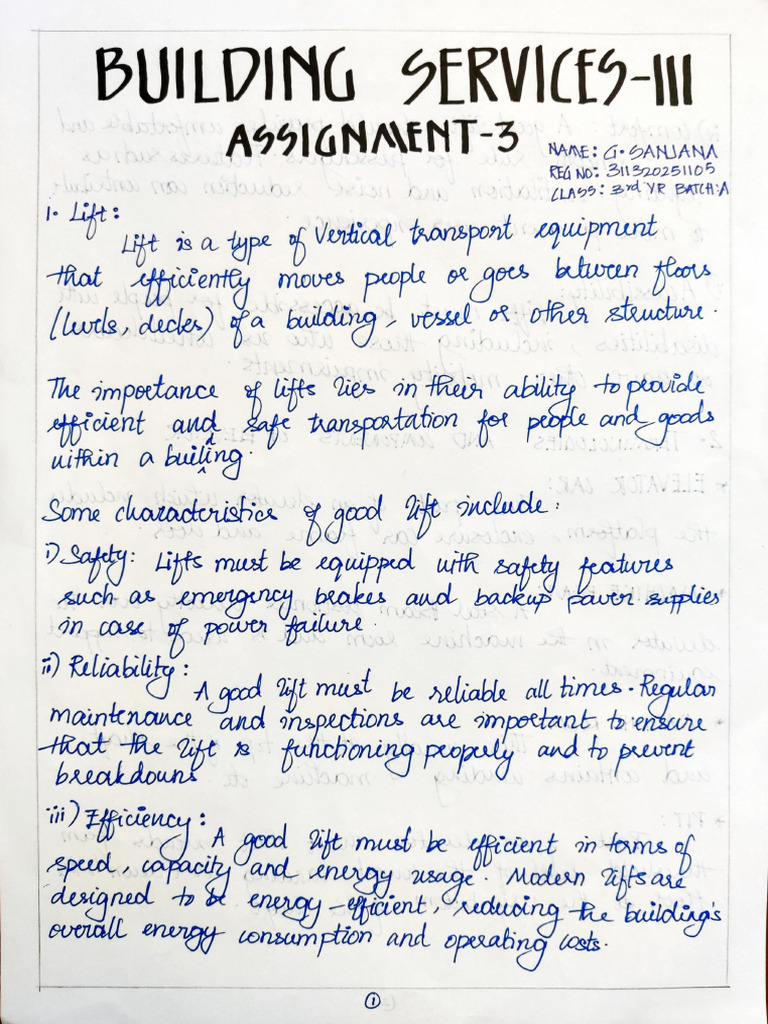 BUILDING SERVICES-III
ASSIGNMENT-3
NAME: G. SANJANA
REG NO: 311320251105
CLASS: 3rd YR BATCH: A
1. Lift:
Lift is a type of Vertical transport equipment
that efficiently moves people or goes between floors
(levels, decks) of a building, vessel or other structure.
The importance of lifts lies in their ability to provide
efficient and safe transportation for people and goods
within a building.
Some characteristics of good lift include:
i) Safety: Lifts must be equipped with safety features
such as emergency brakes and backup power supplies
in case of power failure.
ii) Reliability:
A good lift must be reliable all times. Regular
maintenance and inspections are important to ensure
that the lift is functioning properly and to prevent
breakdowns
iii) Efficiency:
A good lift must be efficient in terms of
speed, capacity and energy usage. Modern lifts are
designed to be energy-efficient, reducing the building's
overall energy consumption and operating costs.
1